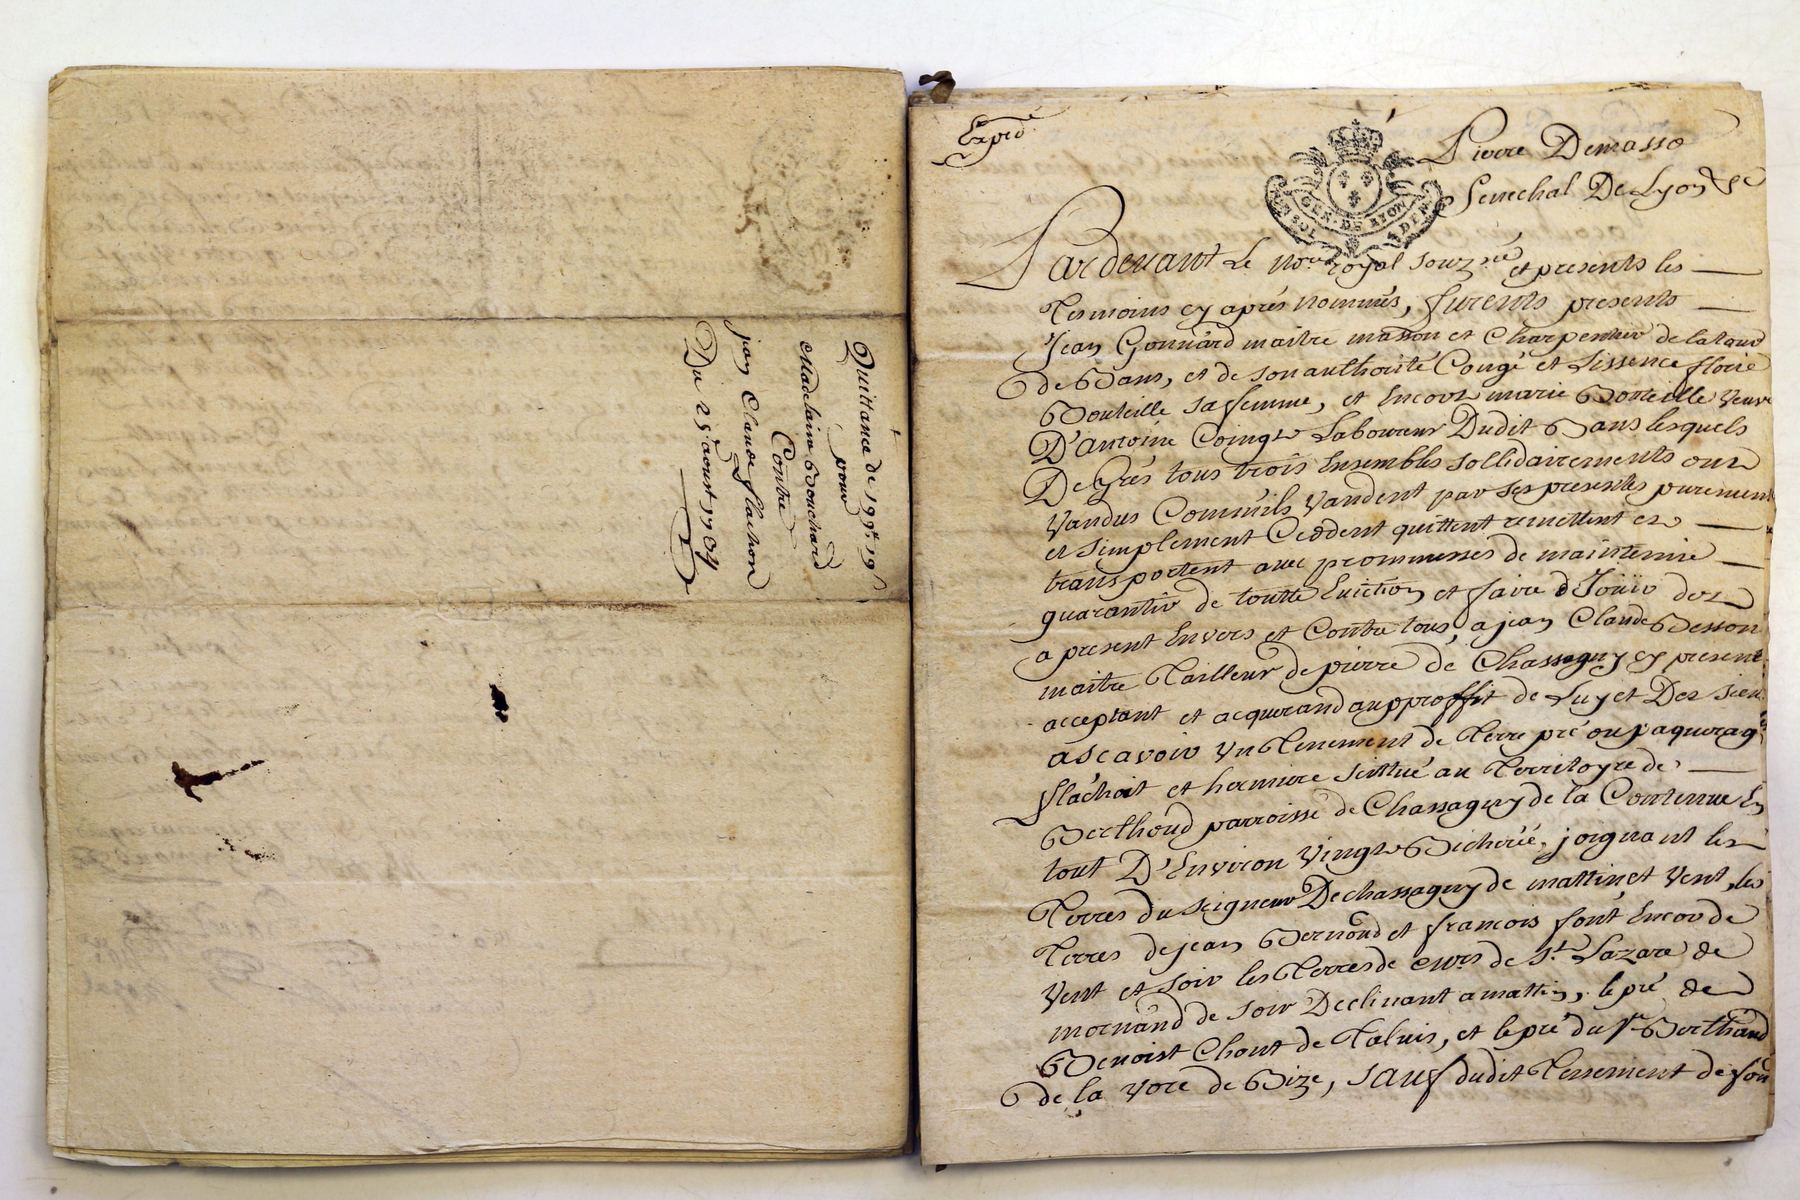 Quittance de 199lt 19s
pour
Madelaine Bouchard
Contre
jean Claude flachon
Du 25 aoust 1704
Expedé
Pierre Demasso
Senechal De Lyon &c
GEN. DE LYON
Pardevant Le nore royal souzne et presents les
Tesmoins cy aprés nommés, furents presents
Jean Gonnard maitre masson et Charpentier de
de Bans, et de son authorité Congé et Lissence florie
Bouteille sa femme, et Encore marie Bouteille veuve
D'antoine Coingt Laboureur Dudit Bans lesquels
De Grés tous trois Ensembles sollidairements ont
Vandus Comm'ils Vandent par ses presentes purement
et simplement Ceddent quittent remettent et
transportent avec prommesses de maintenir
guarantir de toutte Eviction et faire Jouir des
a present Envers et Contre tous, a jean Claude Besson
maitre Tailleur de pierre de Chassagny cy present
acceptant et acquerand au proffit de Luy et Des siens
ascavoir Un Tenement de Terre pré ou paquerage
flachoit et hermure scittué au Territoyre de
Berthoud parroisse de Chassagny de la Contenue En
tout D'Environ vingt Bicherée, joignant les
Terres du seigneur De chassagny de mattin et vent, les
Terres de jean Bernond et francois font Encor de
vent et soir les Terres de de St. Lazare de
mornand de soir Declinant a mattin, le pré de
Benoist Chont de Taluis, et le pré du sr Berthaud
de la vore de Bize, sauf dudit Tennement de son